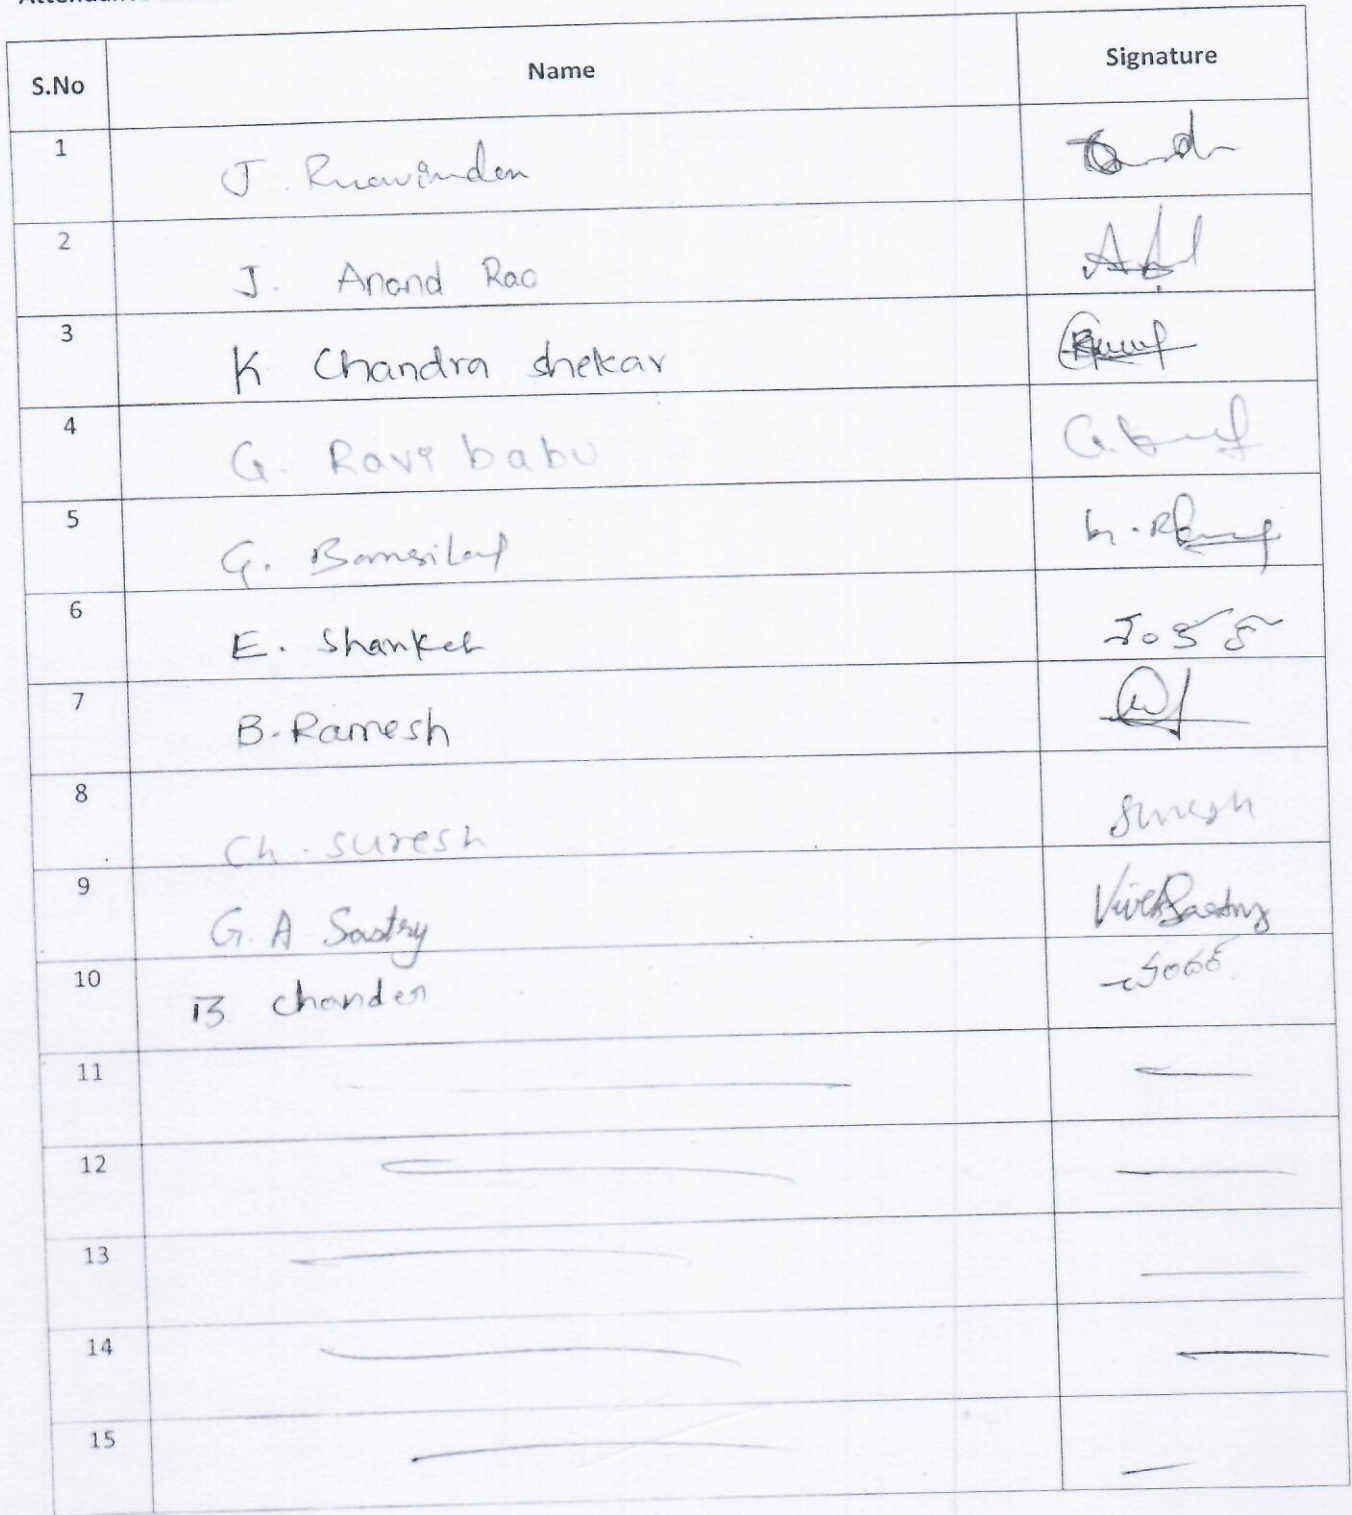 S.No Name Signature
1 J.
2 J. Anand Rao
3 K Chandra shekar
4 G. Ravi babu
5 G. Bamsilal
6 E. Shanker శంకర్
7 B. Ramesh
8 Ch. Suresh Suresh
9 G. A Sastry Vivek Sastry
10 B Chander చందర్
11
12
13
14
15